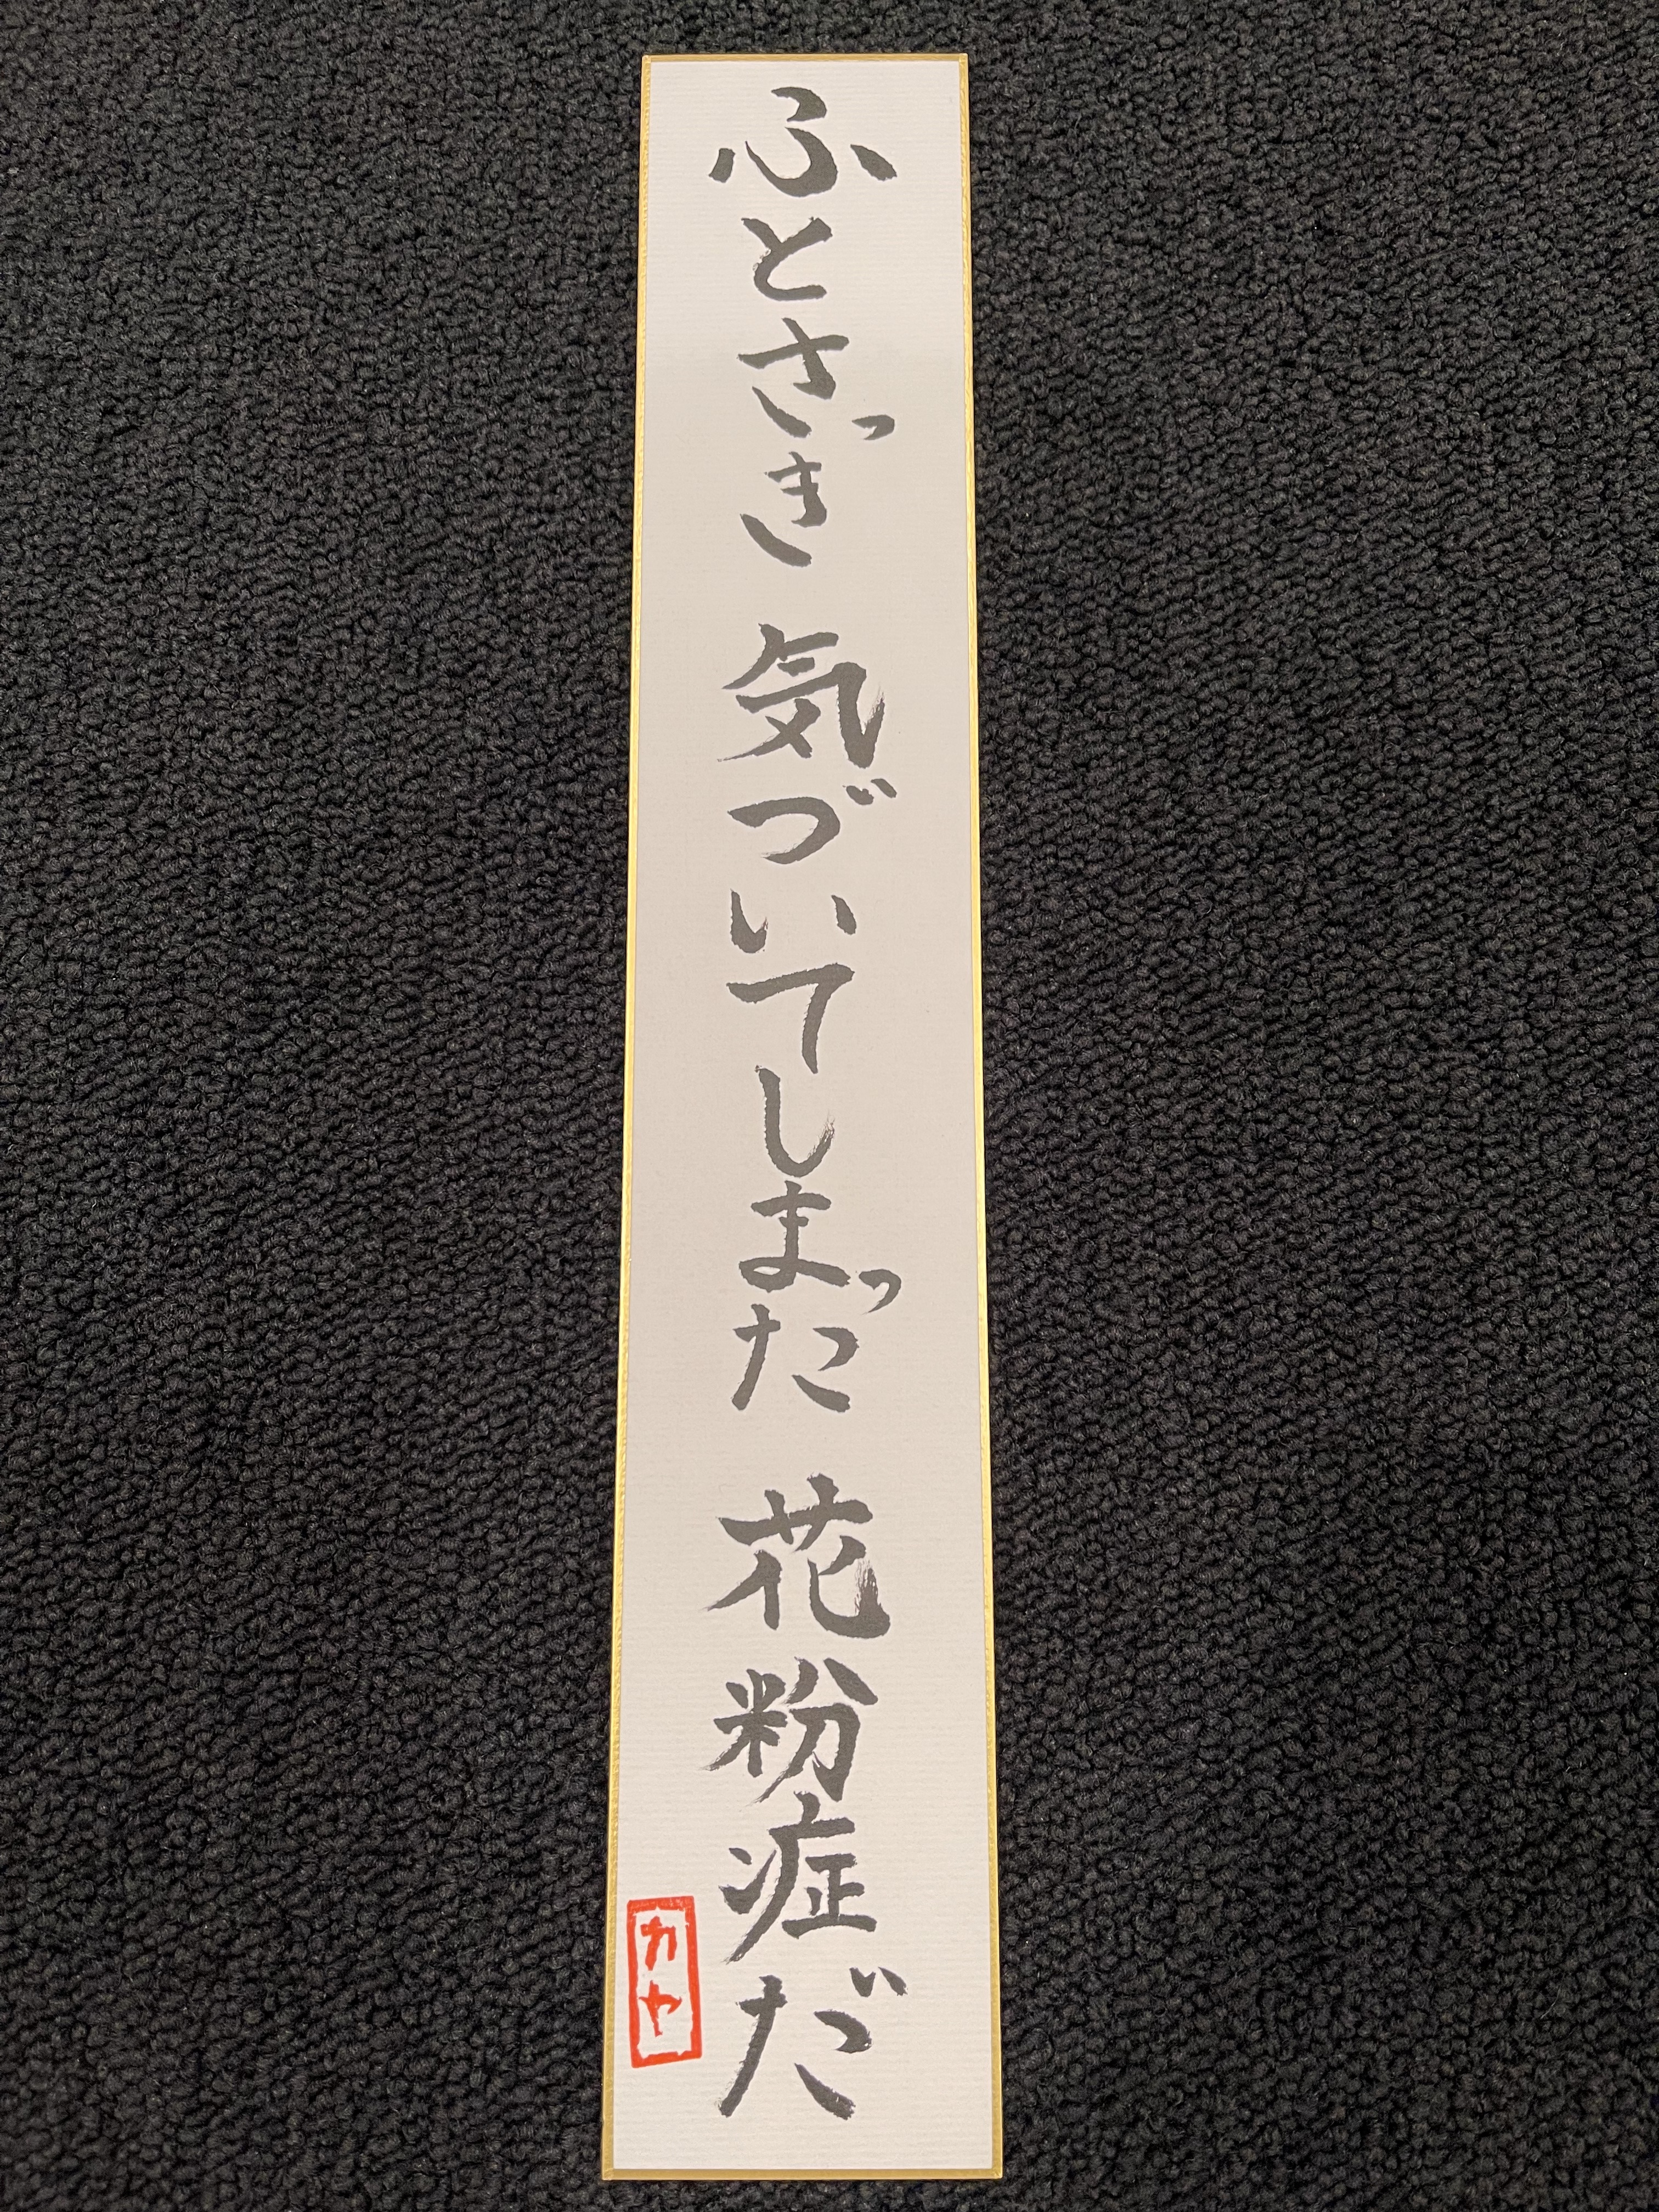 ふとさっき 気づいてしまった 花粉症だ
カヤ